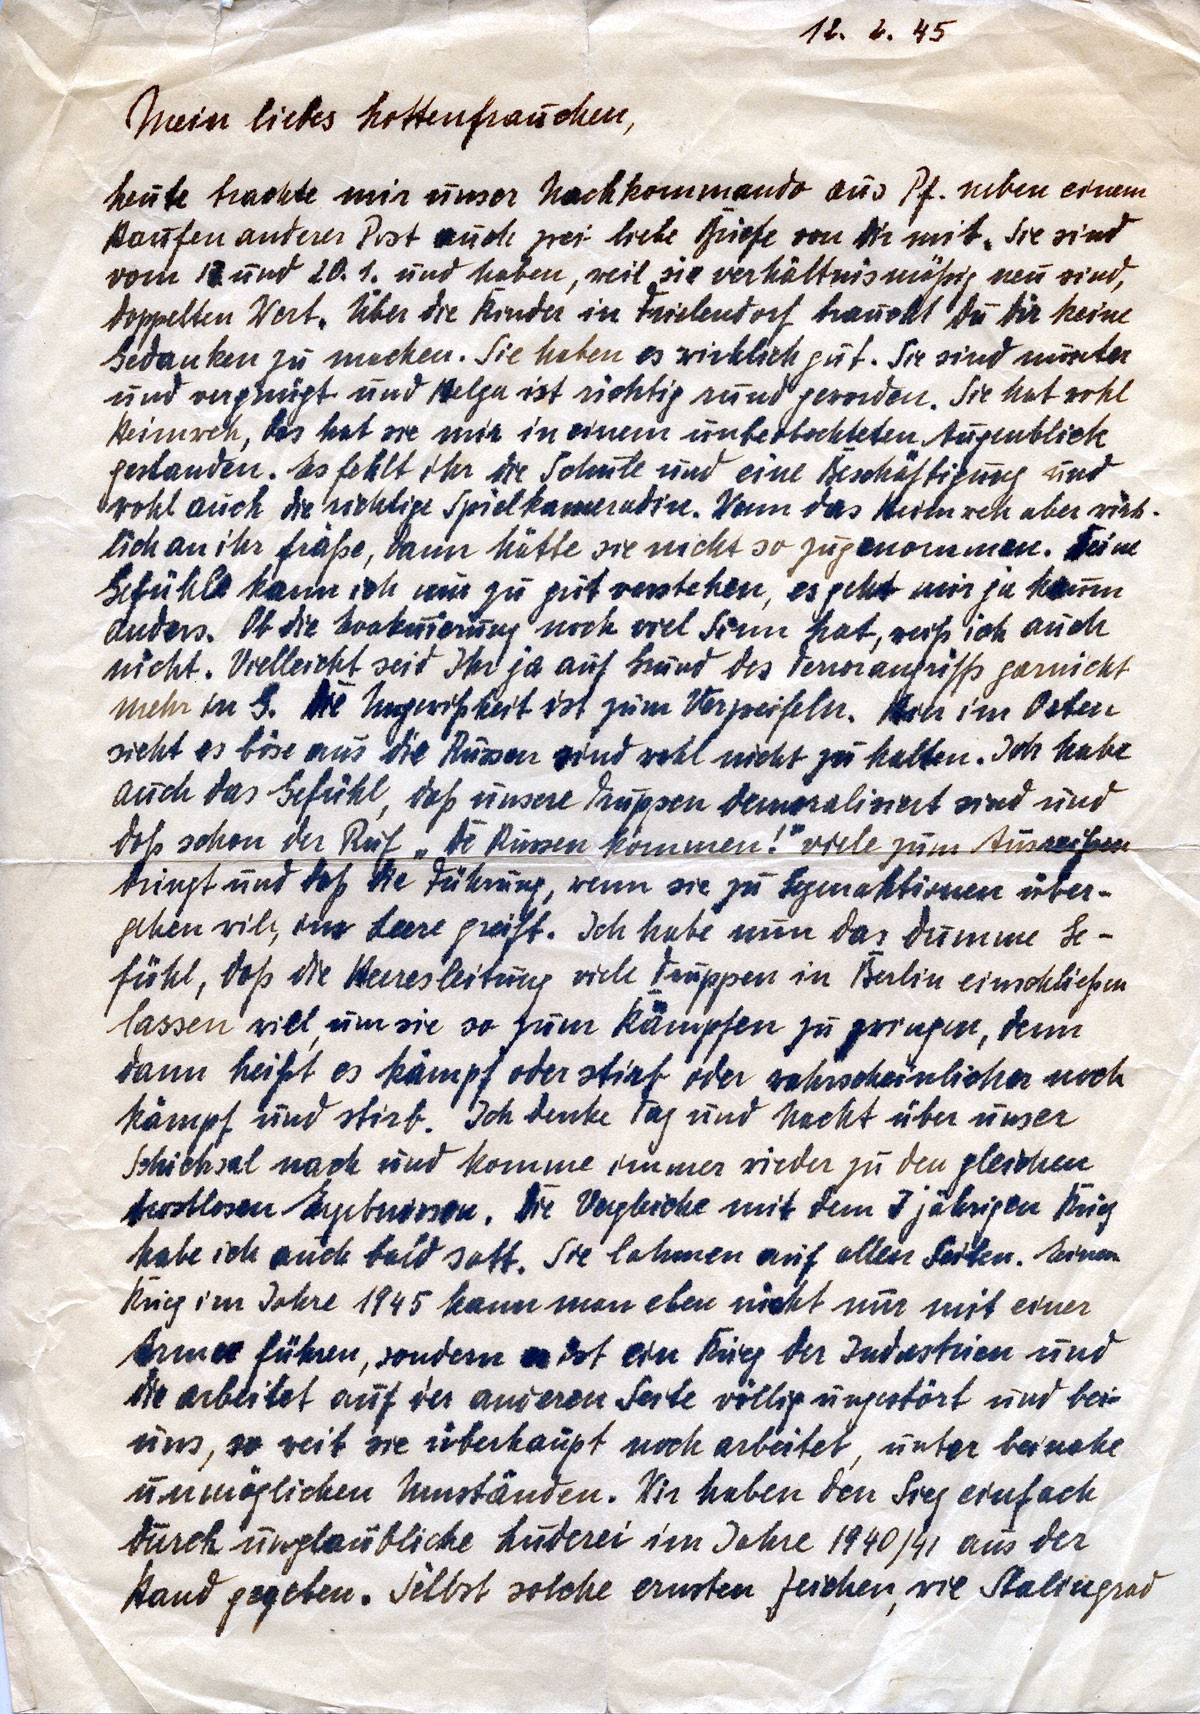 12. 2. 45
Mein liebes Hottenfrauchen,
heute brachte mir unser Nachkommando aus Pf. neben einem
Haufen anderer Post auch zwei liebe Briefe von Dir mit. Sie sind
vom 17 und 20. 1. und haben, weil sie verhältnismäßig neu sind,
doppelten Wert. Über die Kinder in Frielendorf brauchst Du Dir keine
Gedanken zu machen. Sie haben es wirklich gut. Sie sind munter
und vergnügt und Helga ist richtig rund geworden. Sie hat wohl
Heimweh, das hat sie mir in einem unbeobachteten Augenblick
gestanden. Es fehlt ihr die Schule und eine Beschäftigung und
wohl auch die richtige Spielkameradin. Wenn das Heimweh aber wirk-
lich an ihr fräße, dann hätte sie nicht so zugenommen. Deine
Gefühle kann ich nur zu gut verstehen, es geht mir ja kaum
anders. Ob die Evakuierung noch viel Sinn hat, weiß ich auch
nicht. Vielleicht seid Ihr ja auf Grund des Terrorangriffs garnicht
mehr in G. Die Ungewißheit ist zum Verzweifeln. Hier im Osten
sieht es böse aus die Russen sind wohl nicht zu halten. Ich habe
auch das Gefühl, daß unsere Truppen demoralisiert sind und
daß schon der Ruf „Die Russen kommen!" viele zum Ausreißen
bringt und daß die Führung, wenn sie zu Gegenaktionen über-
gehen will, ins Leere greift. Ich habe nun das dumme Ge-
fühl, daß die Heeresleitung viele Truppen in Berlin einschließen
lassen will, um sie so zum Kämpfen zu zwingen, denn
dann heißt es kämpf oder stirb oder wahrscheinlicher noch
kämpf und stirb. Ich denke Tag und Nacht über unser
Schicksal nach und komme immer wieder zu den gleichen
trostlosen Ergebnissen. Die Vergleiche mit dem 7 jährigen Krieg
habe ich auch bald satt. Sie lahmen auf allen Seiten. Einen
Krieg im Jahre 1945 kann man eben nicht nur mit einer
Armee führen, sondern es ist ein Krieg der Industrien und
die arbeitet auf der anderen Seite völlig ungestört und bei
uns, so weit sie überhaupt noch arbeitet, unter beinahe
unmöglichen Umständen. Wir haben den Sieg einfach
durch unglaubliche Luderei im Jahre 1940/41 aus der
Hand gegeben. Selbst solche ernsten Zeichen, wie Stalingrad